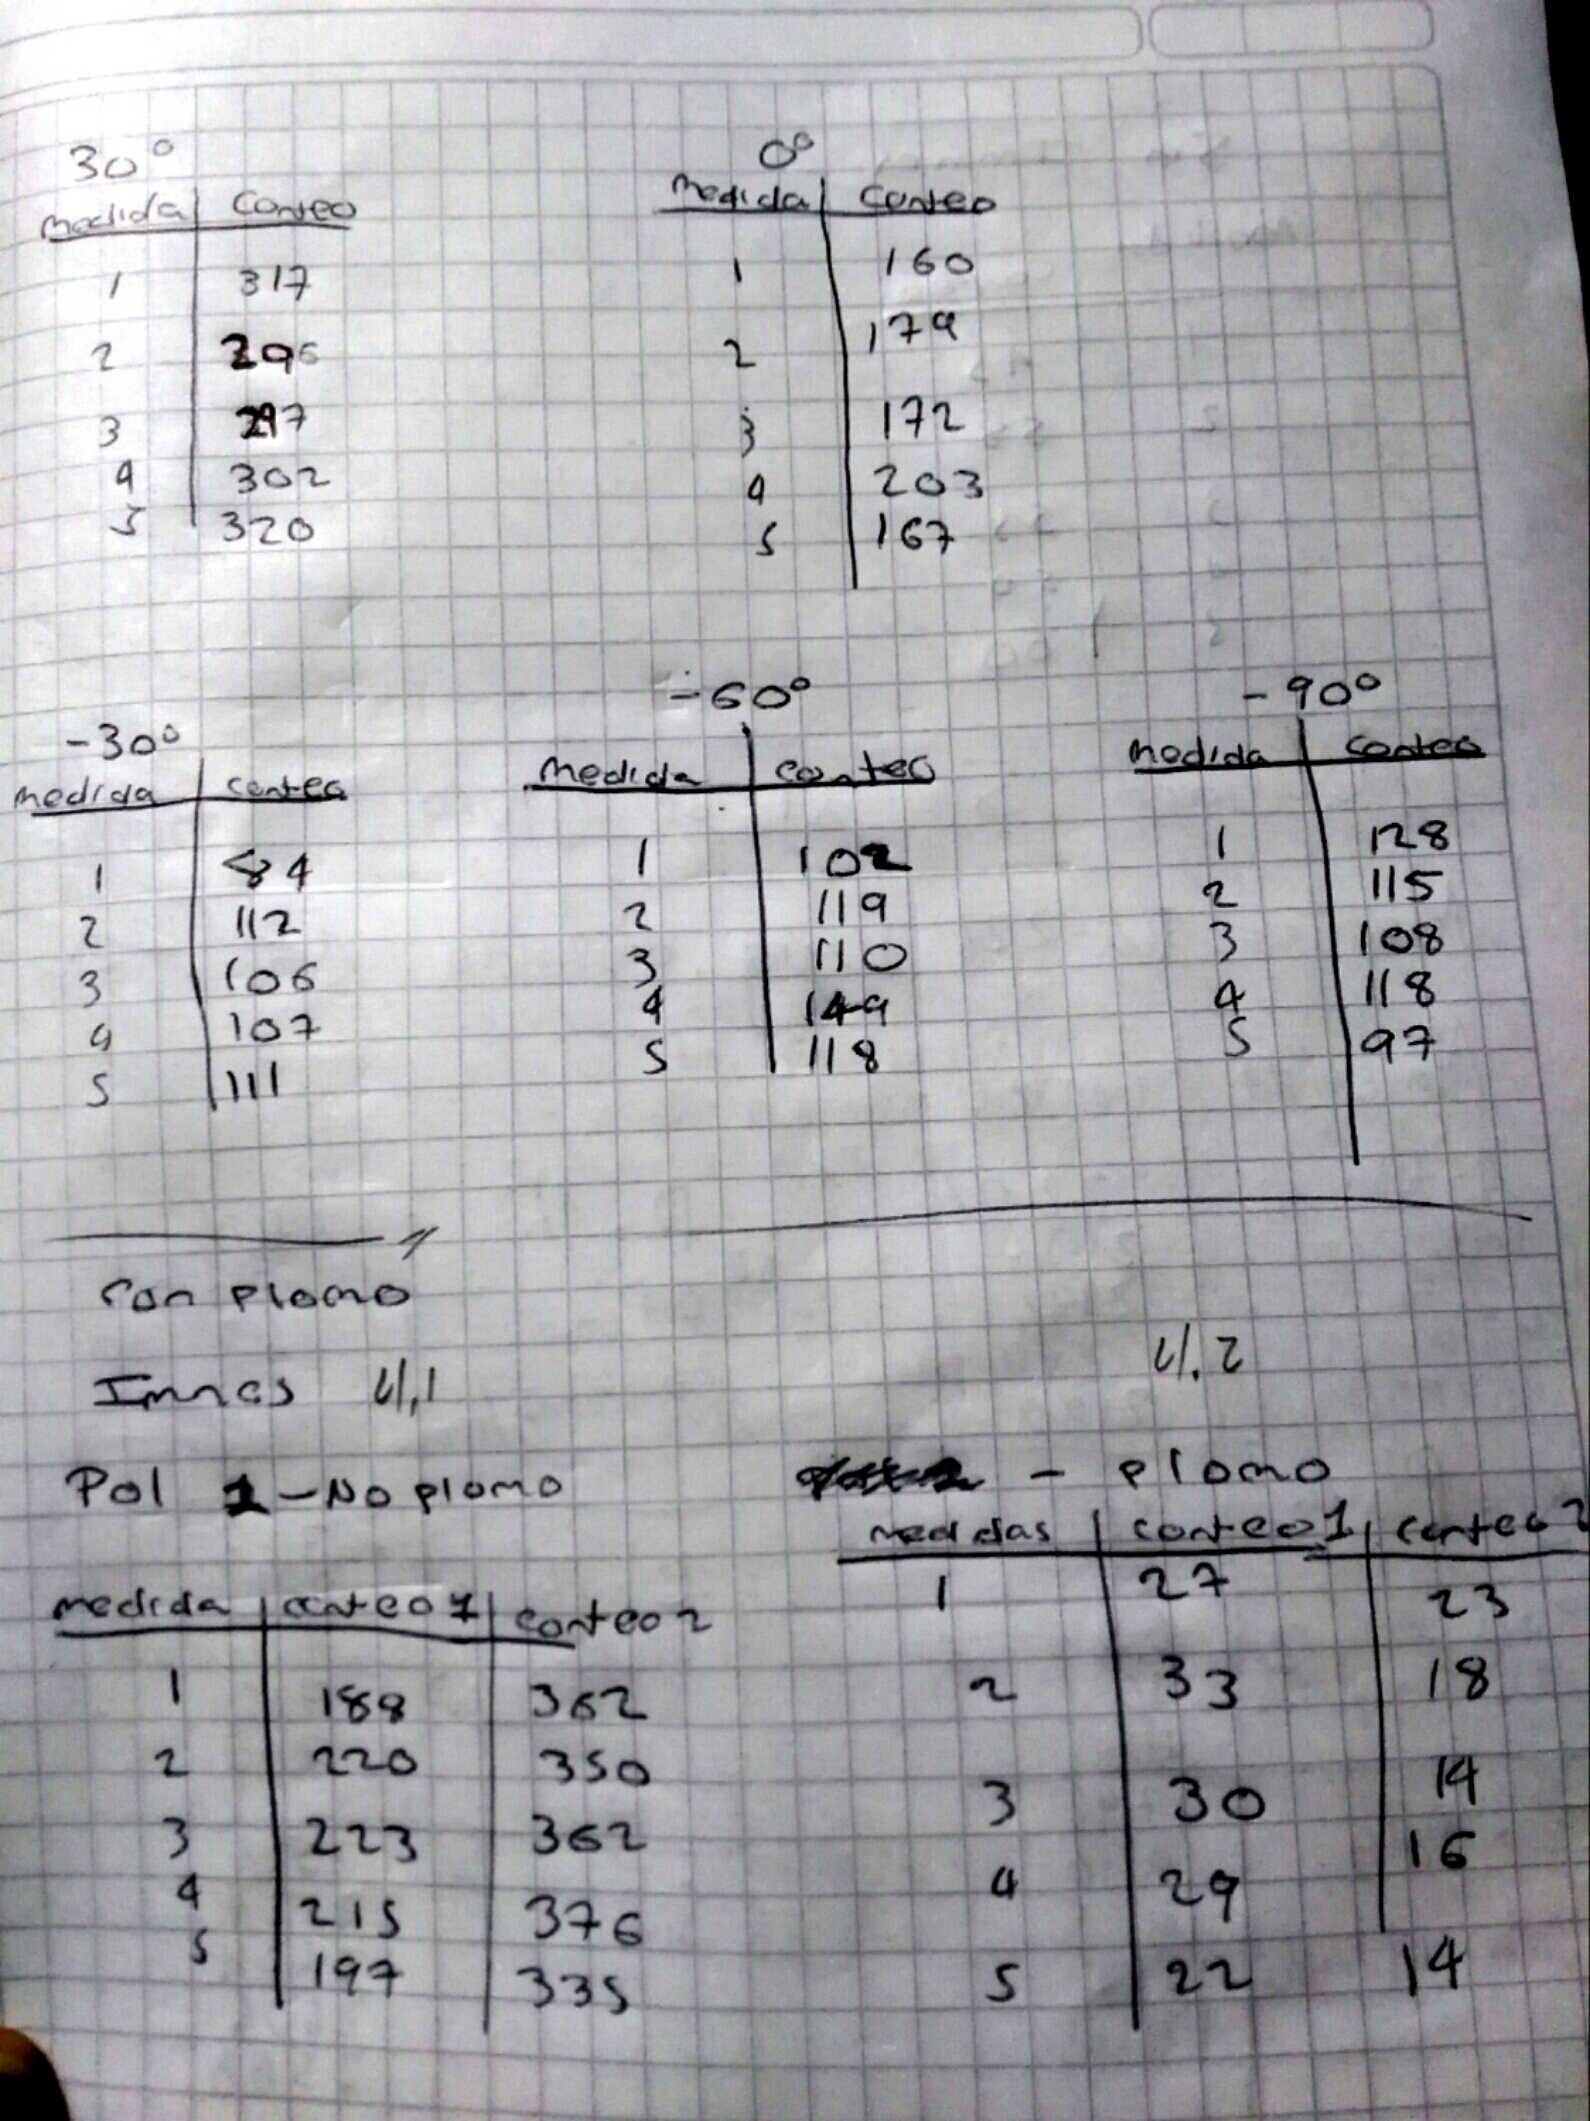 30°
medida conteo
1 317
2 296
3 297
4 302
5 320
0°
medida conteo
1 160
2 179
3 172
4 203
5 167
-30°
medida conteo
1 84
2 112
3 106
4 107
5 111
-60°
medida conteo
1 102
2 119
3 110
4 149
5 118
-90°
medida conteo
1 128
2 115
3 108
4 118
5 97
Con plomo
4.1
Pol 1 - No plomo
medida conteo 1 conteo 2
1 188 362
2 220 350
3 223 362
4 215 376
5 197 335
4.2
- plomo
medidas conteo 1 conteo 2
1 27 23
2 33 18
3 30 14
4 29 16
5 22 14